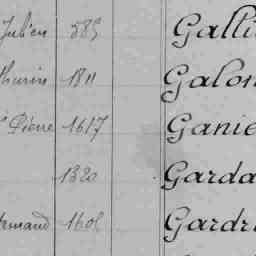 Julien 585 Galli
thurin 1811 Galon
Pierre 1617 Ganie
1320 Garda
Armand 1601 Gardr